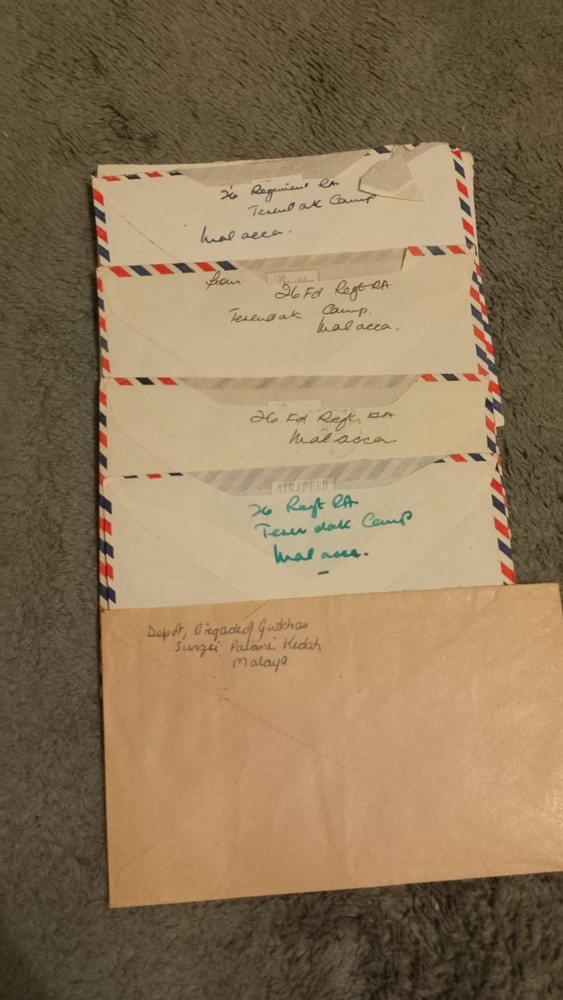 26 Regiment RA
Terendak Camp
Malacca.
from
26 Fd Regt RA
Terendak Camp.
Malacca.
26 Fd Regt. RA
Malacca
AIRSPEED
26 Regt RA
Terendak Camp
Malacca.
Depot, Brigade of Gurkhas
Sungei Patani Kedah
Malaya